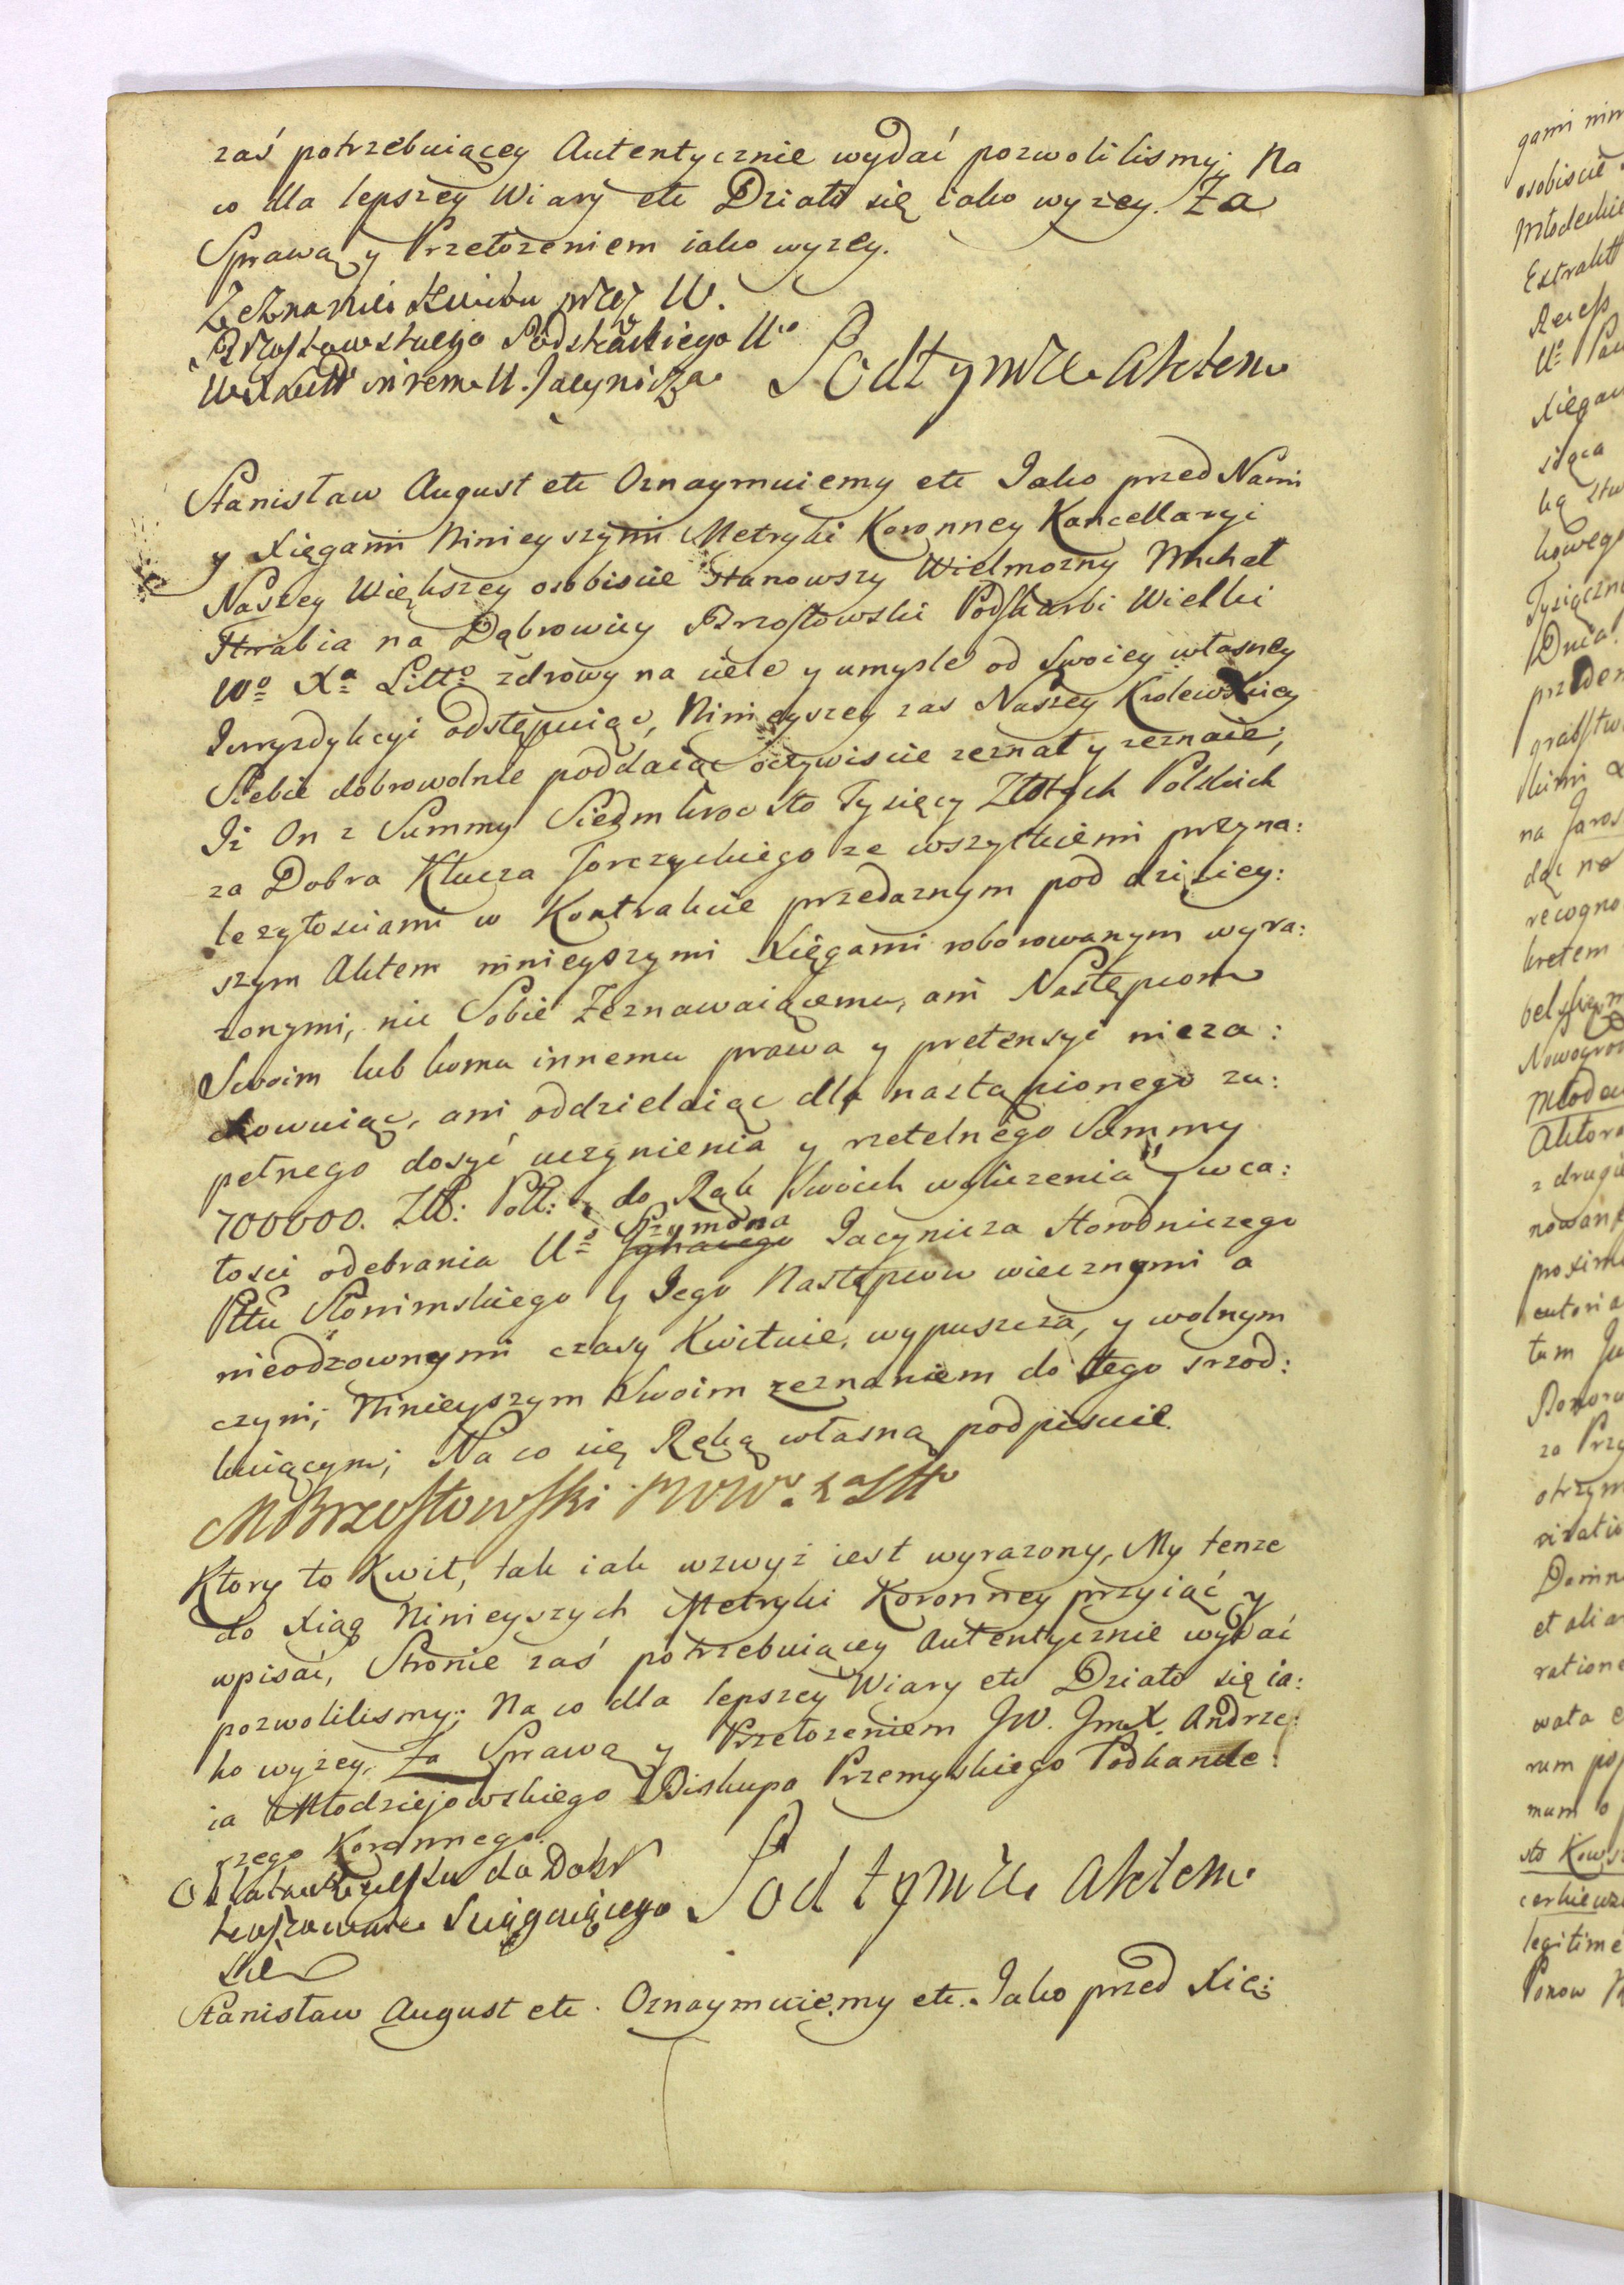 zaś potrzebuiącey Autentycznie wydać pozwolilismy; Na
co dla lepszey Wiary etc Działo się iako wyzey. Za
Sprawą y Przełozeniem iako wyzey.
Zeznanie Kwitu przez W.
Brzostowskiego Podskarbiego Wo
WXLitt in rem U. Jacynicza
Pod tymze Aktem
Stanisław August etc Oznaymuiemy etc Iako przed Nami
y Xięgami Ninieyszymi Metryki Koronney Kancellaryi
Naszey Większey osobiscie Stanowszy Wielmozny Michał
Hrabia na Dąbrowicy Brzostowski Podskarbi Wielki
Wo Xa Litto zdrowy na ciele y umysle od Swoiey własney
Iuryzdykcyi odstępuiąc, Ninieyszey zas Naszey Krolewskiey
Siebie dobrowolnie poddaiąc oczywiscie zeznał y zeznaie,
Iż On z Summy Siedmkroc sto Tysięcy Złotych Polskich
za Dobra Klucza Torczyckiego ze wszytkiemi przyna:
lezytościami w Kontrakcie przedaznym pod dzisiey:
szym Aktem ninieyszymi Xięgami roborowanym wyra:
zonymi, nic Sobie Zeznawaiącemu, ani Następcom
Swoim lub komu innemu prawa y pretensyi nieza:
chowuiąc, ani oddzielaiąc dla nastąpionego zu:
pełnego dosyć uczynienia y rzetelnego Summy
700000. Złł: Poll: do Rąk Swoich wyliczenia y wca:
łosci odebrania Uo Szymona Jacynicza Horodniczego
Pttu Słonimskiego y Iego Następcow wiecznymi a
nieodzownymi czasy Kwituie, wypuszcza, y wolnym
czyni; Ninieyszym Swoim zeznaniem do tego srzod:
kuiącym; Na co się Ręką własną podpisuie
MBrzostowski PWWo Xa Litto
Ktory to Kwit, tak iak wzwyż iest wyrazony, My tenze
do Xiąg Ninieyszych Metryki Koronney przyiąć y
wpisać, Stronie zaś potrzebuiącey Autentycznie wydać
pozwolilismy; Na co dla lepszey Wiary etc Działo się ia:
ko wyzey. Za Sprawą y Przełozeniem JW. JmX. Andrze:
ia Młodziejowskiego Biskupa Przemyskiego Podkancle:
rzego Koronnego.
Oblata do Dobr
Sciągaiącego
się
Pod tymze Aktem
Stanisław August etc. Oznaymuiemy etc. Iako przed Xię: